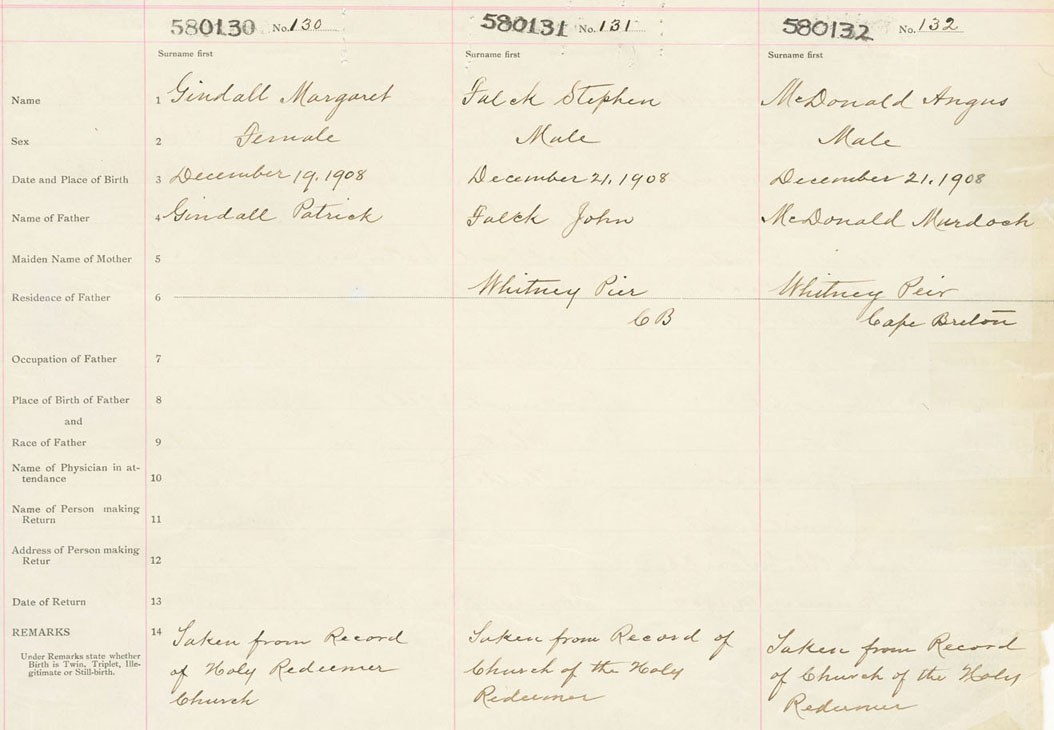 580130 No. 130
580131 No. 131
580132 No. 132
Surname first
Surname first
Surname first
Name 1 Gindall Margaret
Falck Stephen
McDonald Angus
Sex 2 Female
Male
Male
Date and Place of Birth 3 December 19, 1908
December 21, 1908
December 21, 1908
Name of Father 4 Gindall Patrick
Falck John
McDonald Murdoch
Maiden Name of Mother 5
Residence of Father 6
Whitney Pier
C B
Whitney Peir
Cape Breton
Occupation of Father 7
Place of Birth of Father 8
and
Race of Father 9
Name of Physician in at-
tendance 10
Name of Person making
Return 11
Address of Person making
Retur 12
Date of Return 13
REMARKS 14
Under Remarks state whether
Birth is Twin, Triplet, Ille-
gitimate or Still-birth.
Taken from Record
of Holy Redeemer
Church
Taken from Record of
Church of the Holy
Redeemer
Taken from Record
of Church of the Holy
Redeemer